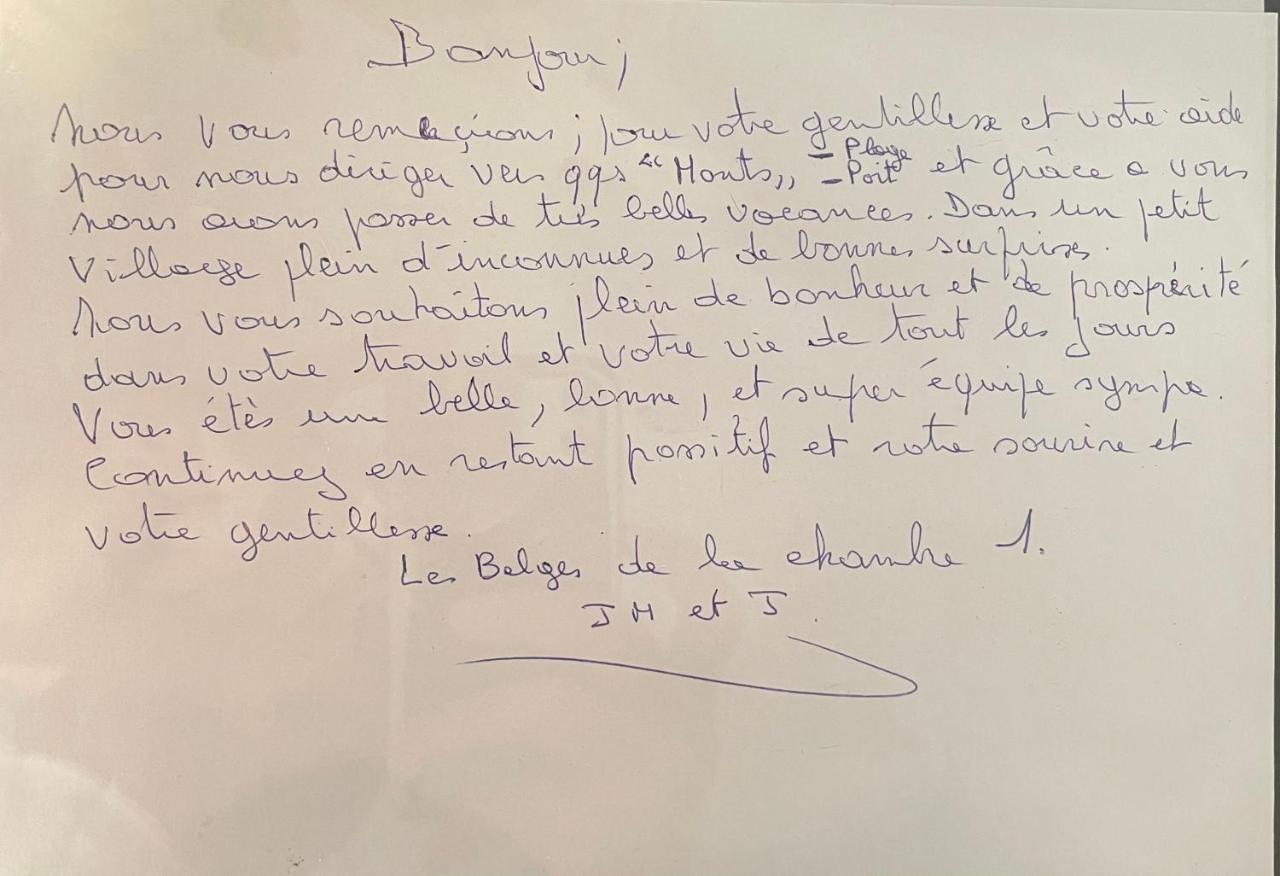 Bonjour;
Nous vous remerçions; pour votre gentillesse et votre aide
pour nous diriger vers qqs "Monts,, - Plage - Poite et grâce a vous
nous avons passer de très belles vacances. Dans un petit
village plein d'inconnues et de bonnes surprises.
Nous vous souhaitons plein de bonheur et de prospérité
dans votre travail et votre vie de tout les jours
Vous étès une belle, bonne, et super équipe sympa.
Continuez en restant possitif et votre sourire et
votre gentillesse.
Les Belges de la chambre 1.
JM et J.